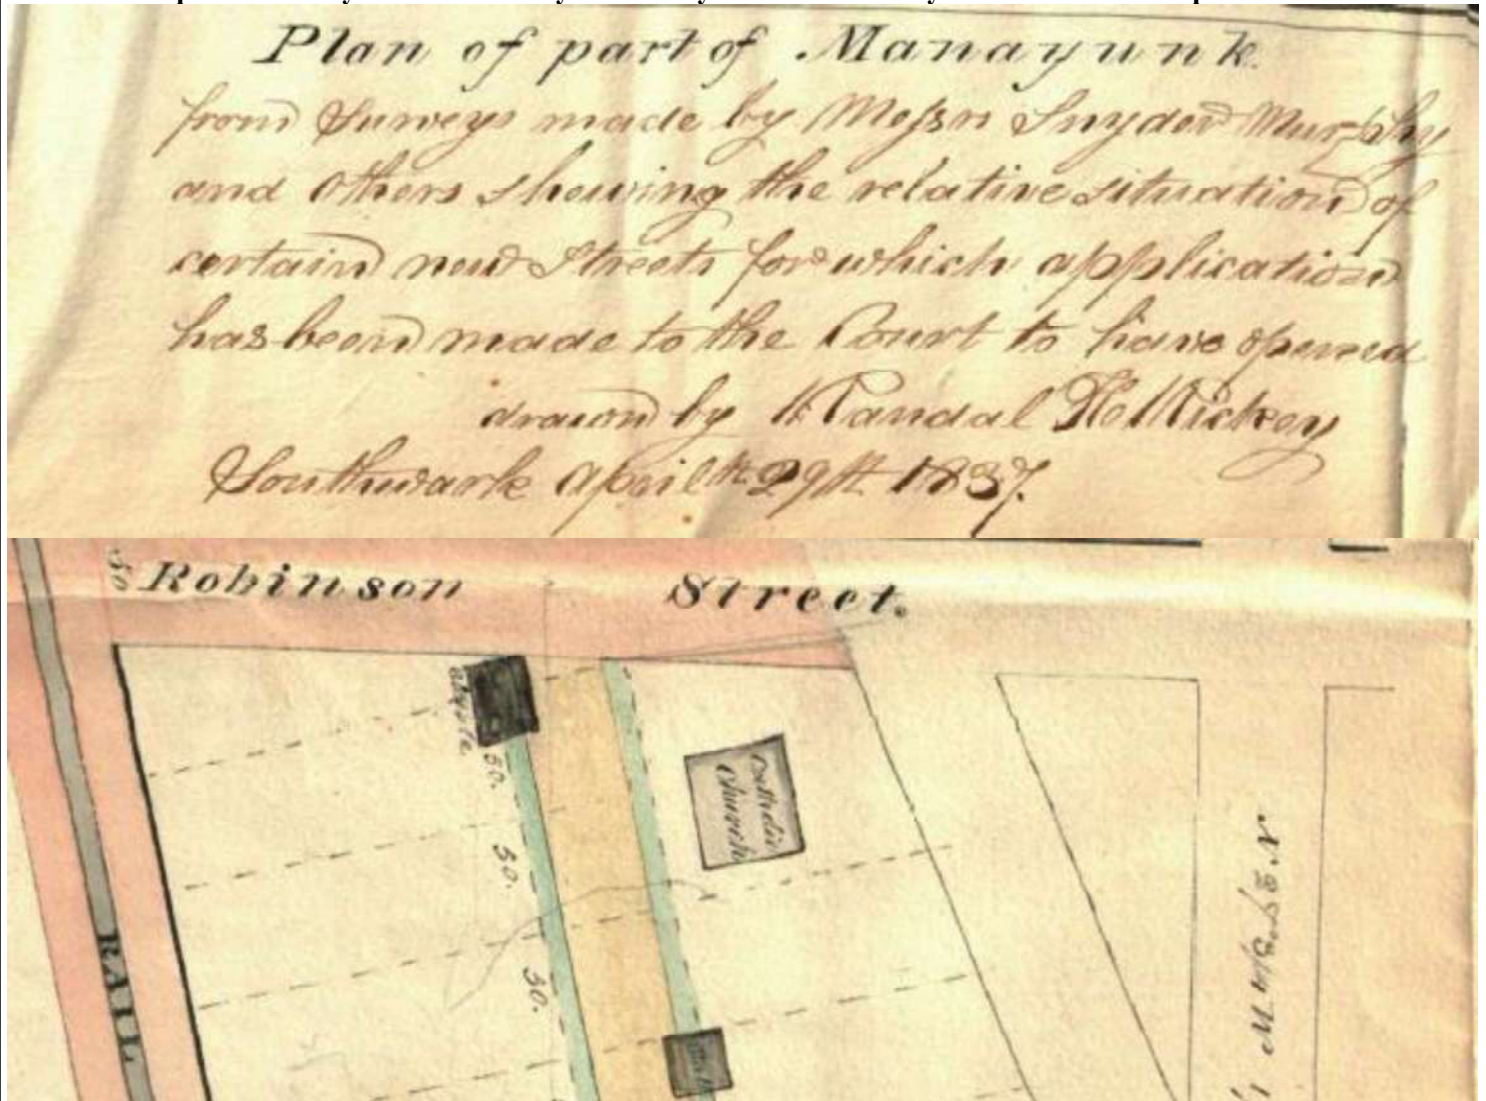 Plan of part of Manayunk.
from Surveys made by Messrs Snyder Murphy
and others shewing the relative situation of
certain new Streets for which application
has been made to the Court to have opened
drawn by Randal
Southwark April 29th 1837.
Robinson Street.
50
50.
50.
50.
Catholic
Church
RAIL